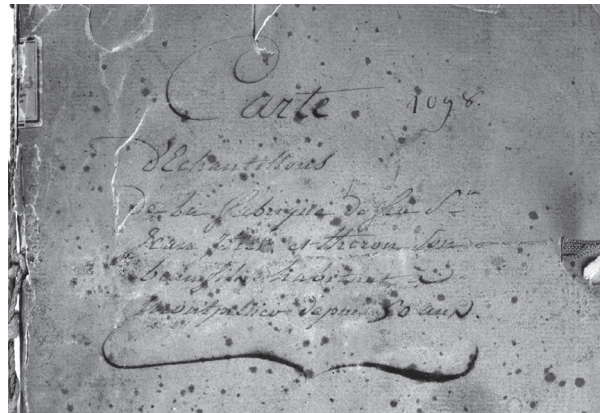 Carte 1098.
d'Echantillons
De la fabrique de feu Sr
Jean et theron Son
beaufils habitant à
Montpellier depuis 50 ans.